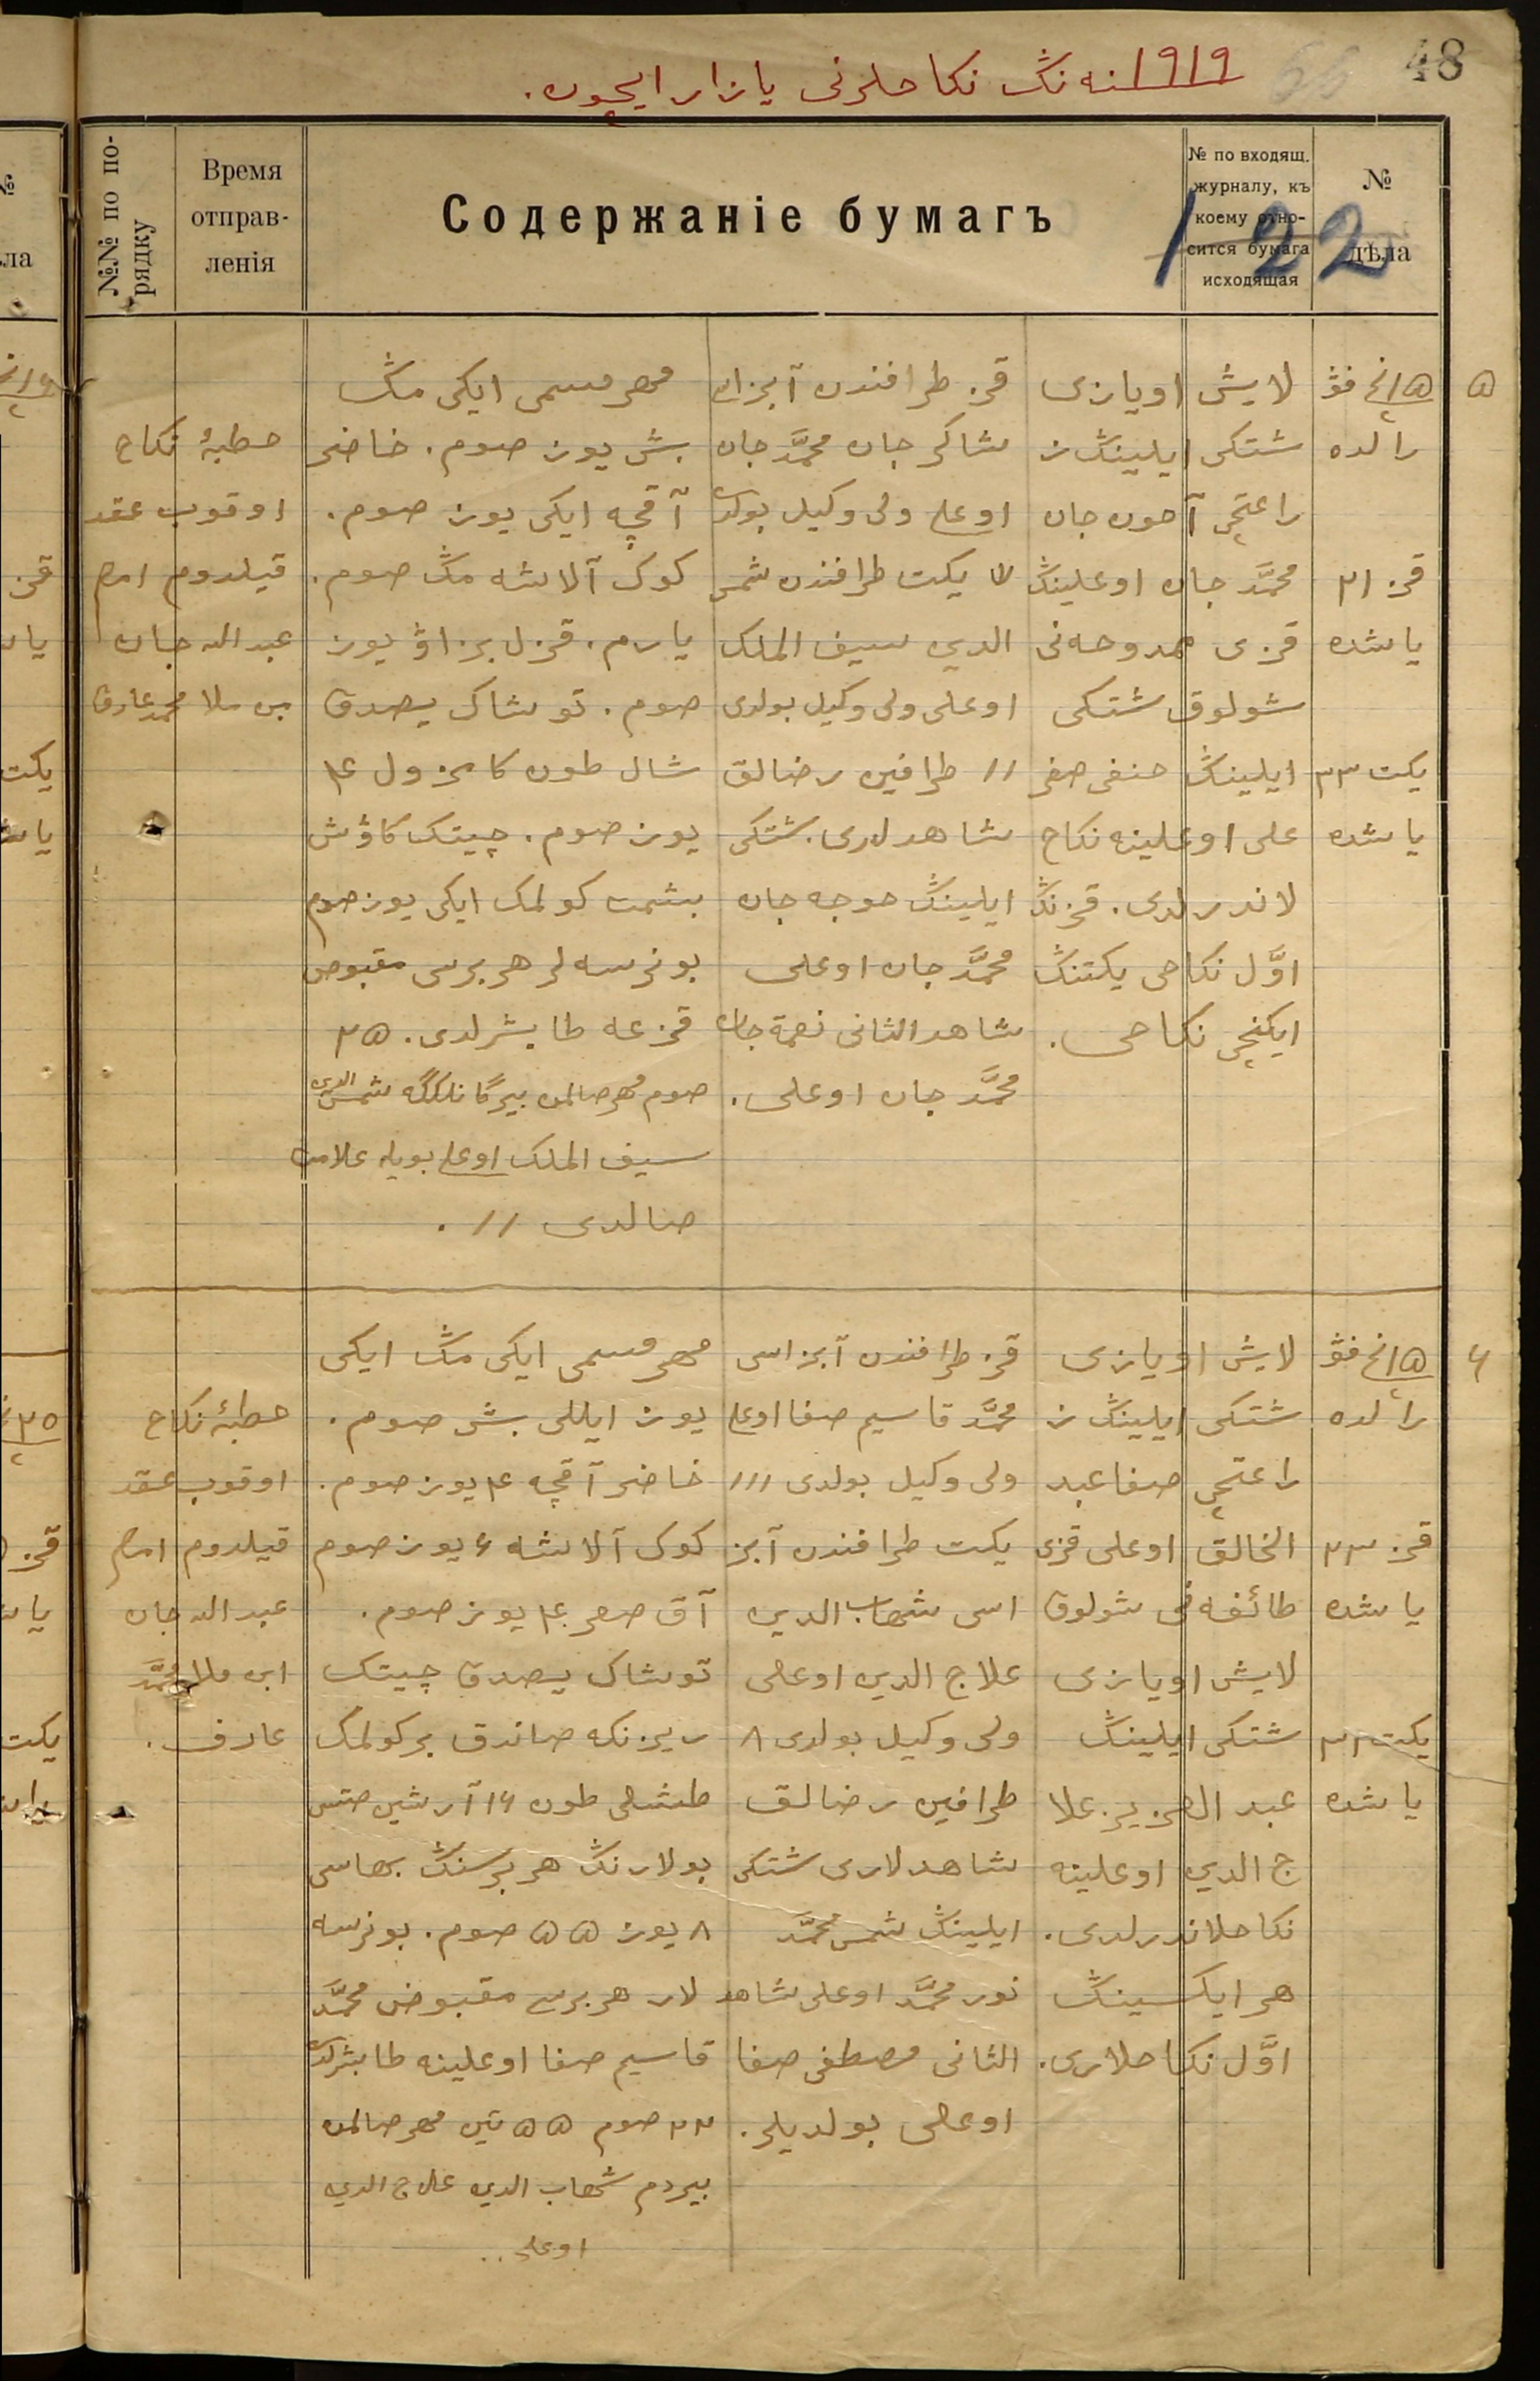 48
1919 نه نڭ نكاحلرنی یازار ایچون.
№№ по по-
рядку
Время
отправ-
ленія
Содержаніе бумагъ
№ по входящ.
журналу, къ
коему отно-
сится бумага
исходящая
№
дѣла
122
۵
۱۵نچی فڤ
رالده
قز ۲۱
یاشده
یكت ۳۳
یاشده
لایش اویازی
شتكی ایلینڭ ز
راعتچی آحون جان
محمّد جان اوعلینڭ
قزی ممدوحه نی
شولوق شتكی
ایلینڭ حنفی صفر
علی اوعلینه نكاح
لاندرلدی. قزنڭ
اوّل نكاحی یكتنڭ
ایكنچی نكاحی.
قز طرافندن آبزاسی
شاكر جان محمّد جان
اوعلی ولی وكیل بولدی
یكت طرافندن شمس
الدین سیف الملك
اوعلی ولی وكیل بولدی
// طرافین رضالق
شاهدلری. شتكی
ایلینڭ حوجه جان
محمّد جان اوعلی
شاهد الثانی نعمة جان
محمّد جان اوعلی.
مهر مسمی ایكی مڭ
بش یوز صوم. خاضر
آقچه ایكی یوز صوم.
كوك آلاشه مڭ صوم.
یارم. قزل بزاو یوز
صوم. توشاك یصدق
شال طون كامزول ۴
یوز صوم. چیتك كاوش
بشمت كولمك ایكی یوز صوم
بو نرسه لر هر برسی مقبوض
قزعه طابشرلدی. ۲۵
صوم مهر صالمن بیرگانلككه شمس الدین
سیف الملك اوعلی بویله علامت
صالدی //.
حطبهٔ نكاح
اوقوب عقد
قیلدوم امام
عبد الله جان
بن ملا محمد عارف
۶
۱۵نچی فڤ
رالده
قز ۲۳
یاشده
یكت ۲۱
یاشده
لایش اویازی
شتكی ایلینڭ ز
راعتچی صفا عبد
الخالق اوعلی قزی
طائفه نی شولوق
لایش اویازی
شتكی ایلینڭ
عبد العزیز علا
ج الدین اوعلینه
نكاحلاندرلدی.
هر ایكسینڭ
اوّل نكاحلاری.
قز طرافندن آبزاسی
محمّد قاسیم صفا اوعلی
ولی وكیل بولدی ///
یكت طرافندن آبز
اسی شهاب الدین
علاج الدین اوعلی
ولی وكیل بولدی ۸
طرافین رضالق
شاهدلاری شتكی
ایلینڭ شمس محمّد
نور محمّد اوعلی شاهد
الثانی مصطفی صفا
اوعلی بولدیلر.
مهر مسمی ایكی مڭ ایكی
یوز ایللی بش صوم.
خاضر آقچه ۴ یوز صوم.
كوك آلاشه ۶ یوز صوم
آق صعر ۴ یوز صوم.
توشاك یصدق چیتك
ریزنكه صاندق بر كولمك
طشلی طون ۱۶ آرشین صتس
بولارنڭ هر برسنڭ بهاسی
۸ یوز ۵۵ صوم. بو نرسه
لار هر برسی مقبوض محمّد
قاسیم صفا اوعلینه طابشرلدی
۲۲ صوم ۵۵ تین مهر صالمن
بیردم شهاب الدین علاج الدین
اوعلی..
حطبهٔ نكاح
اوقوب عقد
قیلدوم امام
عبد الله جان
ابن ملا محمّد
عارف.